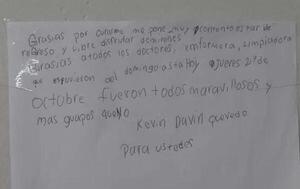 Grasias por curarme me pone muy contento estar de
regreso y libre disfrutar domingos
Grasias a todos los doctores, emfermera, limpiadora
que estuvieron del domingo asta Hoy jueves 2 de
octubre fueron todos maravillosos y
mas guapos que yo
Kevin Davin quevedo
Para ustedes